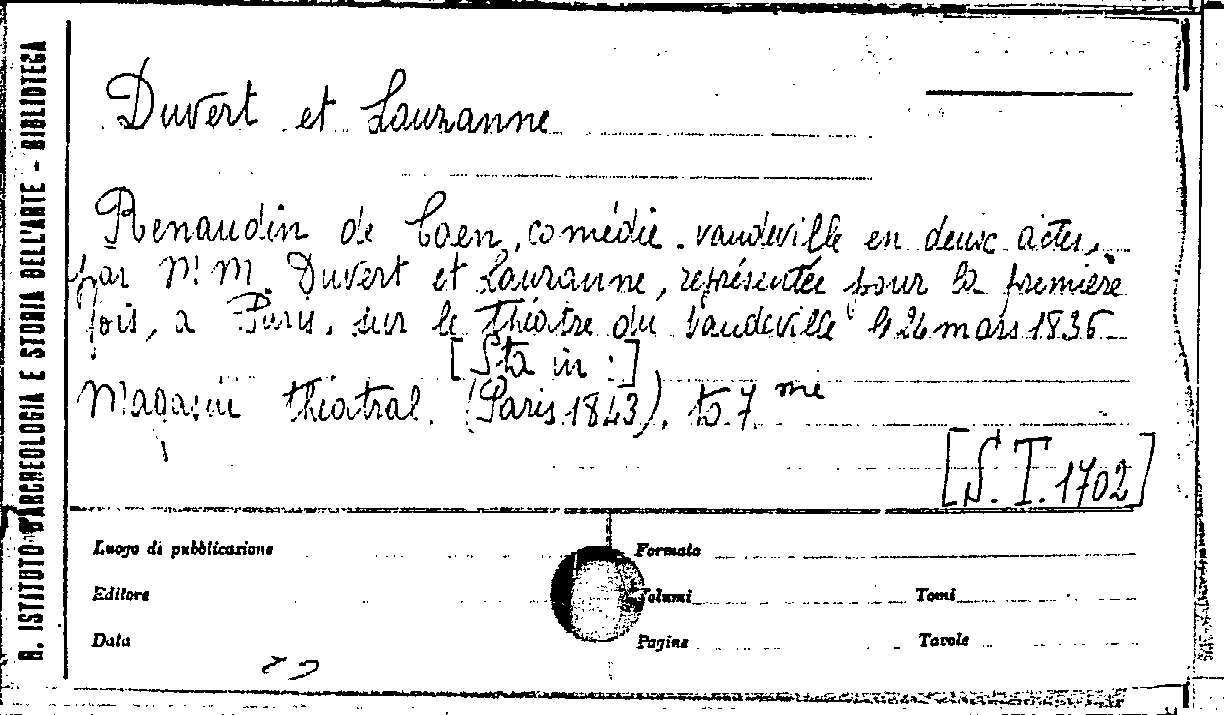 R. ISTITUTO D'ARCHEOLOGIA E STORIA DELL'ARTE - BIBLIOTECA
Duvert et Lauzanne
Renaudin de Caen, comédie-vaudeville en deux actes,
par M.M. Duvert et Lauzanne, représentée pour la première
fois, à Paris, sur le théâtre du Vaudeville le 24 mars 1836
[Sta in:]
Magasin théatral. (Paris 1843), to. 7 me
[S. T. 1702]
Luogo di pubblicazione
Formato
Editore
Volumi
Tomi
Data
Pagine
Tavole